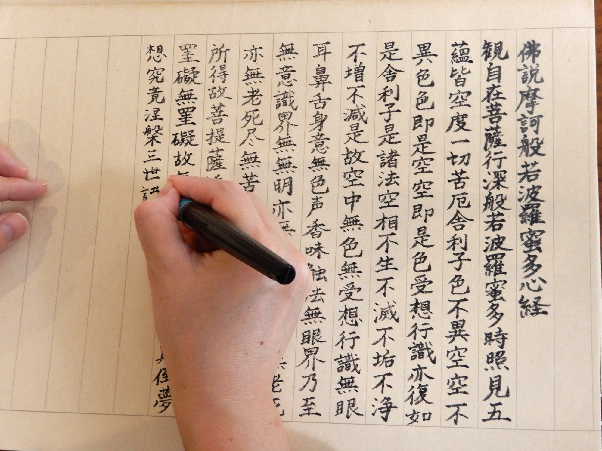 佛説摩訶般若波羅蜜多心経
観自在菩薩行深般若波羅蜜多時照見五
蘊皆空度一切苦厄舎利子色不異空空不
異色色即是空空即是色受想行識亦復如
是舎利子是諸法空相不生不滅不垢不浄
不増不減是故空中無色無受想行識無眼
耳鼻舌身意無色声香味触法無眼界乃至
無意識界無無明亦老死
亦無老死尽無苦
所得故菩提薩
罣礙無罣礙故倒夢
想究竟涅槃三世